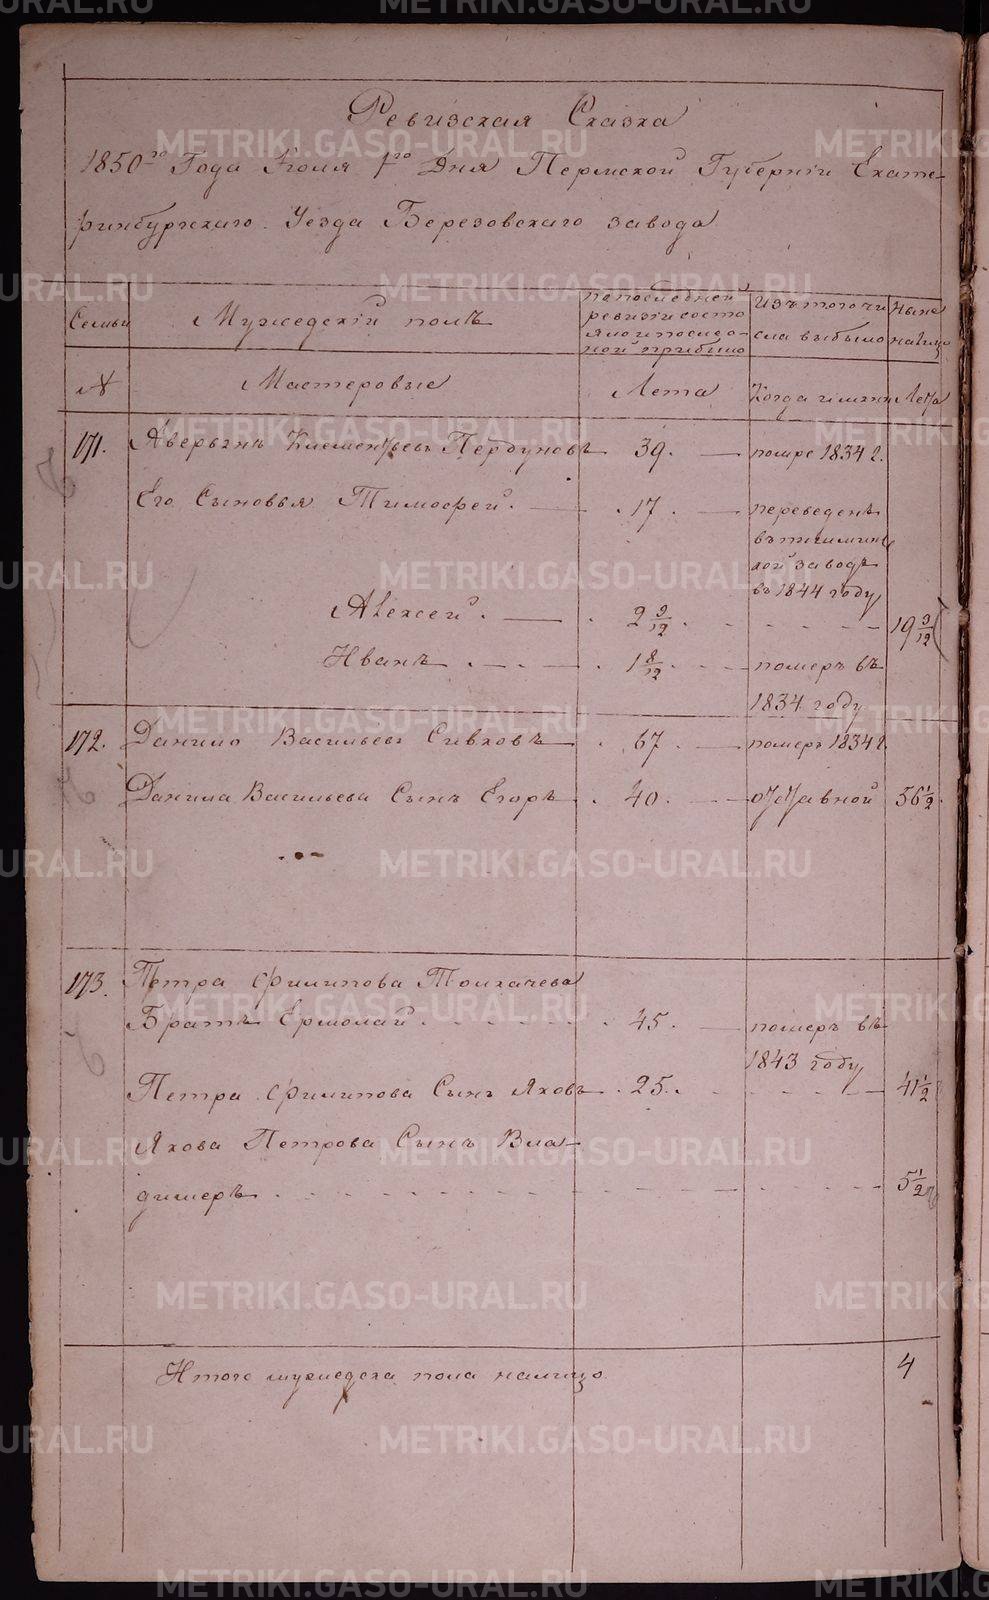 Ревизская Сказка
1850го Года Июля 1го Дня Пермской Губернiи Екате-
ринбургскаго Уезда Березовскаго завода
Семьи
Мужедский полъ
по последней
ревизiи состо
яло и после о-
ной прибыло
Изъ того чи
сла выбыло
Ныне
налицо
№
Мастеровые
Лета
Когда именно
Лета
171. Аверьянъ Клементьевъ Пердуновъ 39. помре 1834 г.
Его Сыновья Тимофей. 17. переведенъ
въ
кой заводъ
въ 1844 году
Алексей. 2 9/12 19 9/12
Иванъ 1 8/12 померъ въ
1834 году
172. Данило Васильевъ Сивковъ 67. померъ 1834 г.
Данила Васильева Сынъ Егоръ 40. отставной 56 1/2
173. Петра Филипова Толкачева
Братъ Ермолай 45. померъ въ
1843 году
Петра Филипова Сынъ Яковъ 25. 41 1/2
Якова Петрова Сынъ Вла-
димеръ 5 1/2
Итого мужедска пола налицо. 4
METRIKI.GASO-URAL.RU